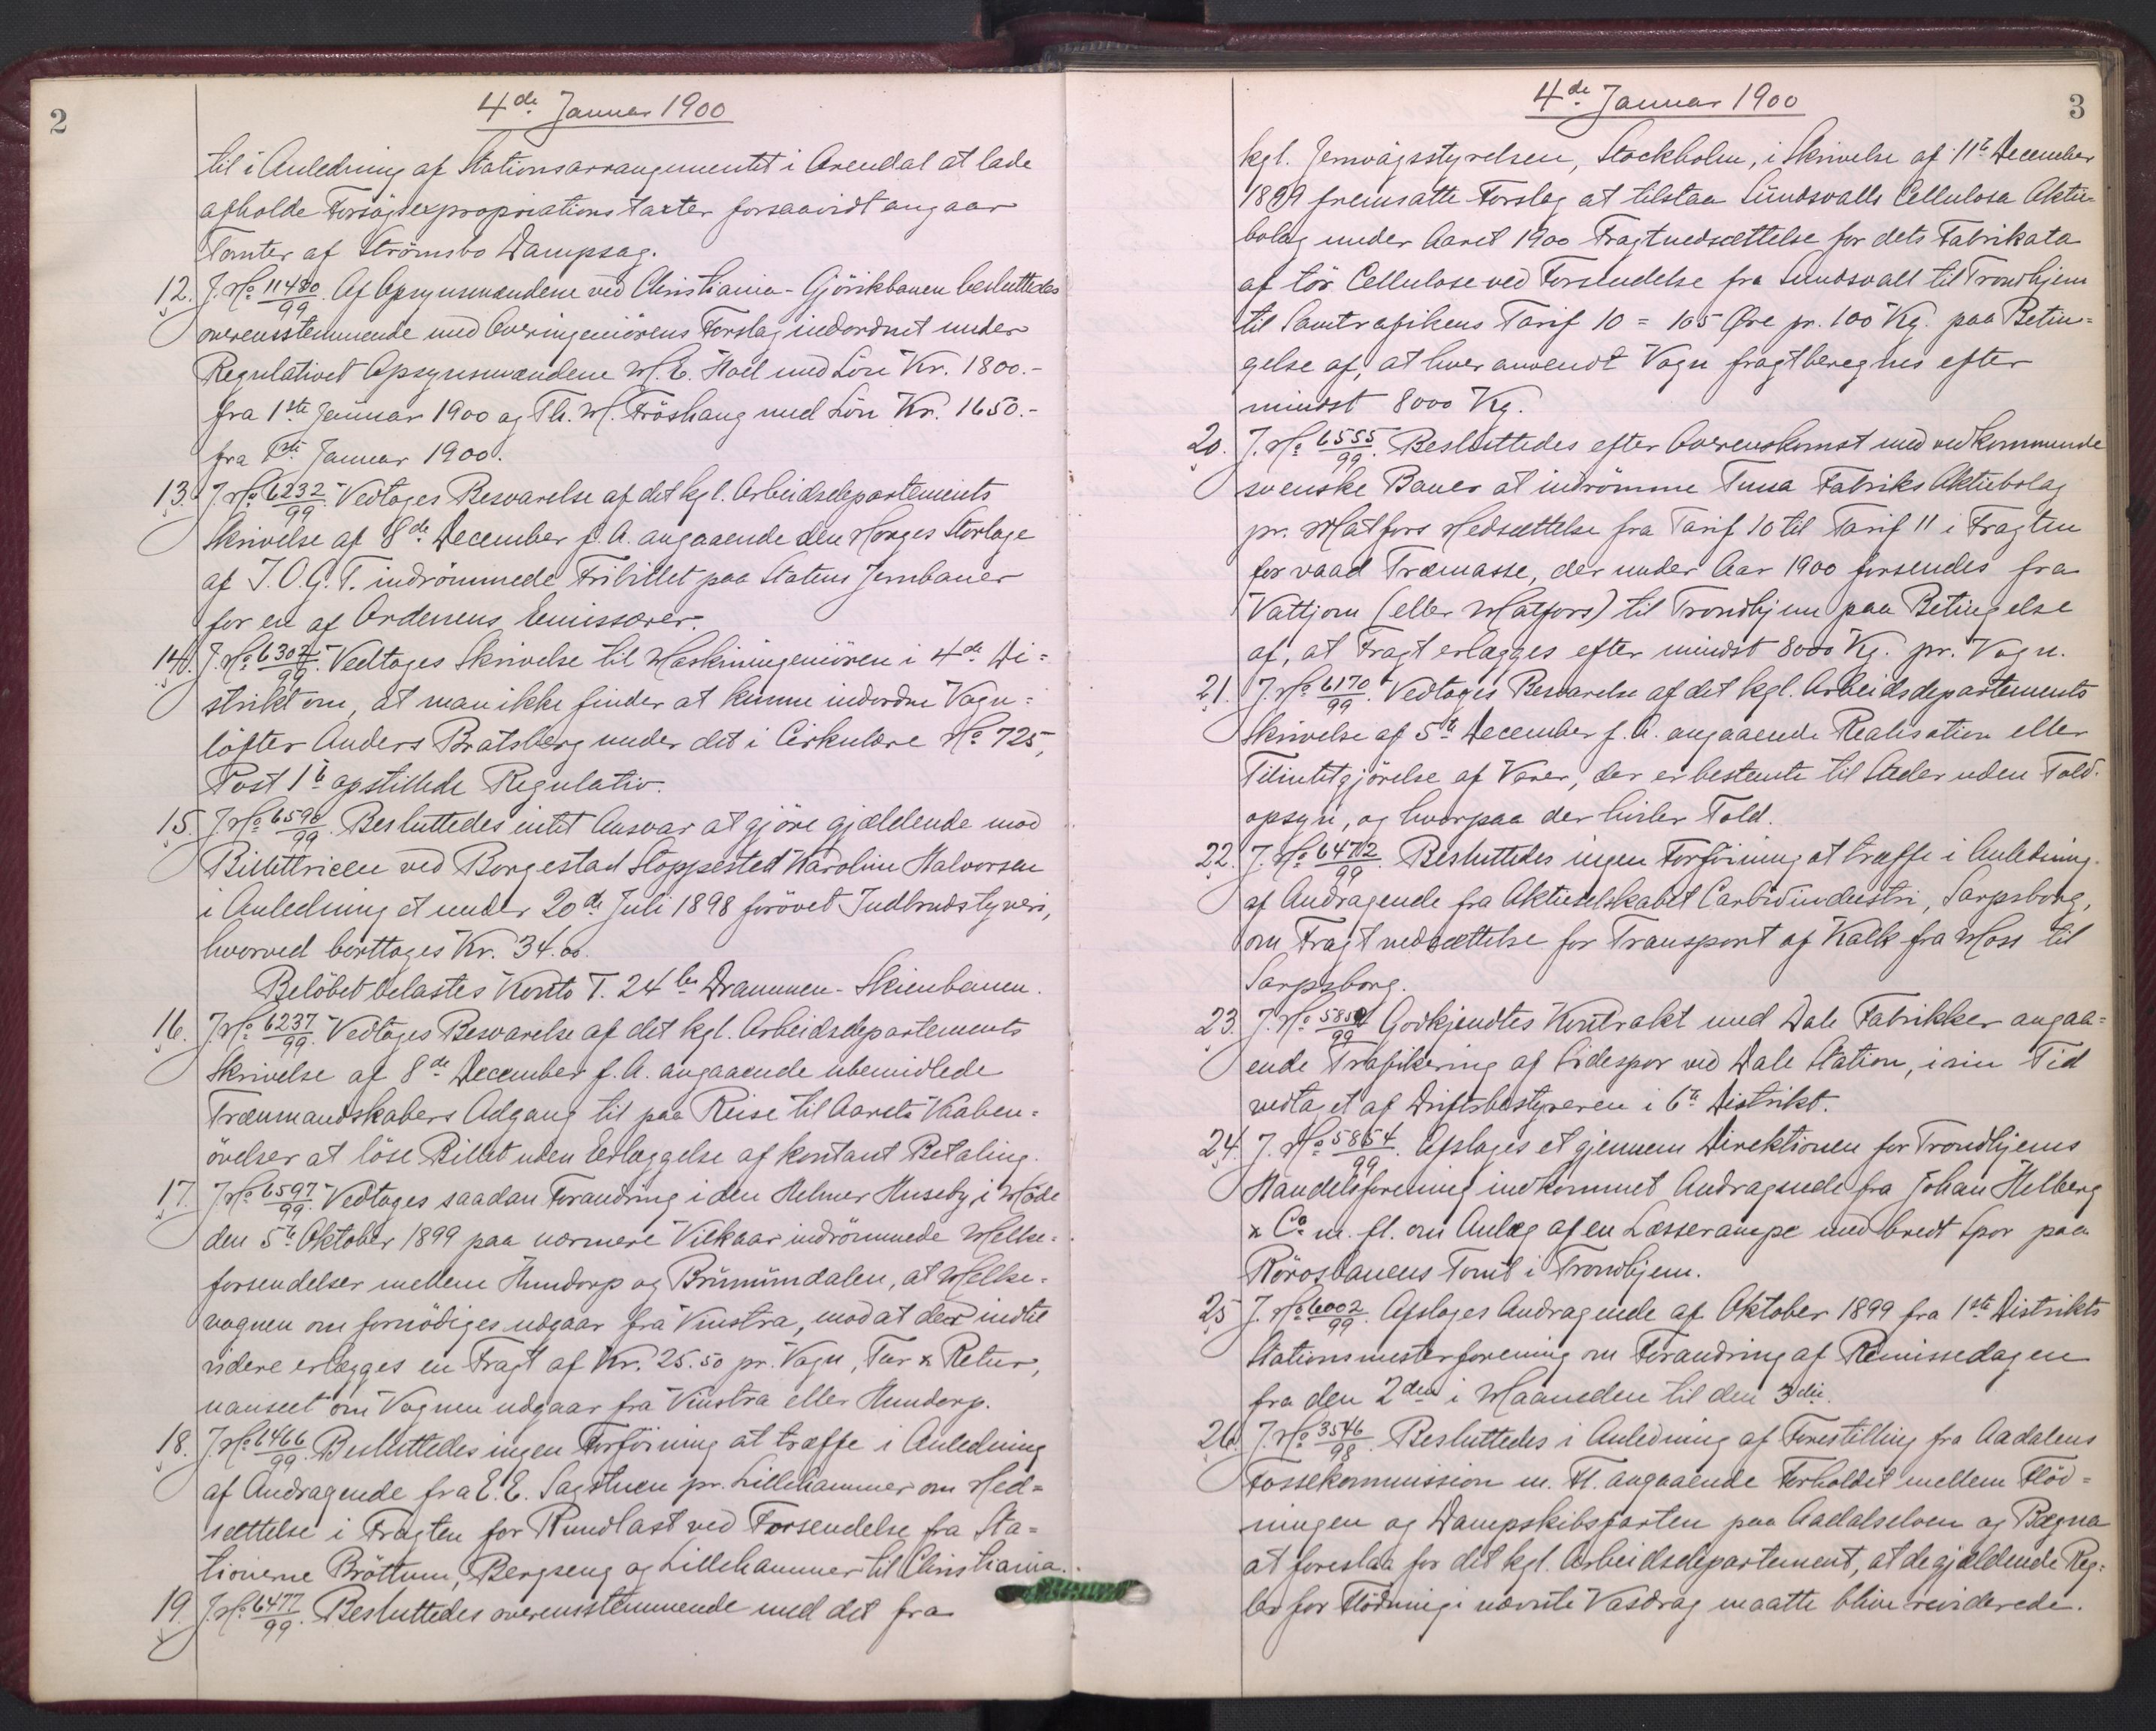 2
4de Januar 1900
til i Anledning af Stationsarrangementet i Arendal at lade
afholde Forsøgsexpropriationstaxter forsaavidt angaar
Tomter af Strömsbo Dampsag.
12. J. No 11480/99. Af Opsynsmændene ved Christiania-Gjövikbanen besluttedes
overensstemmende med Overingeniörens Forslag indordnet under
Regulativet Opsynsmændene M. E. Hoel med Lön Kr. 1800.-
fra 1ste Januar 1900 og Th. M. Fröshaug med Lön Kr. 1650.-
fra 1ste Januar 1900.
13. J. No 6232/99. Vedtoges Besvarelse af det kgl. Arbeidsdepartements
Skrivelse af 8de December f. A. angaaende den Norges Storloge
af I. O. G. T. indrömmede Fribillet paa Statens Jernbaner
for en af Ordenens Emissærer.
14. J. No 6302/99. Vedtoges Skrivelse til Maskiningeniören i 4de Di=
strikt om, at man ikke finder at kunne indordne Vogn=
löfter Anders Bratsberg under det i Cirkulære No 725,
Post 1 b opstillede Regulativ.
15. J. No 6590/99. Besluttedes intet Ansvar at gjöre gjældende mod
Billettricen ved Borgestad Stoppested Karoline Halvorsen
i Anledning et under 20de Juli 1898 forövet Indbrudstyveri,
hvorved borttoges Kr. 34.00.
Belöbet belastes Konto T. 24 Drammen-Skienbanen.
16. J. No 6237/99. Vedtoges Besvarelse af det kgl. Arbeidsdepartements
Skrivelse af 8de December f. A. angaaende ubemidlede
Trænmandskabers Adgang til paa Reise til Aarets Vaaben=
övelser at löse Billet uden Erlæggelse af kontant Betaling.
17. J. No 6597/99. Vedtoges saadan Forandring i den Helmer Huseby i Möde
den 5te Oktober 1899 paa nærmere Vilkaar indrömmede Melke=
forsendelser mellem Hundorp og Brumunddalen, at Melke=
vognen om fornödiges udgaar fra Vinstra, mod at der indtil
videre erlægges en Fragt af Kr. 25.50 pr. Vogn, Tur & Retur,
uanseet om Vognen udgaar fra Vinstra eller Hundorp.
18. J. No 6466/99. Besluttedes ingen Forföining at træffe i Anledning
af Andragende fra E. E. Sagstuen pr. Lillehammer om Ned=
sættelse i Fragten for Rundlast ved Forsendelse fra Sta=
tionerne Bröttum, Bergseng og Lillehammer til Christiania.
19. J. No 6477/99. Besluttedes overensstemmende med det fra
3
4de Januar 1900
kgl. Jernvägsstyrelsen, Stockholm, i Skrivelse af 11te December
1899 fremsatte Forslag at tilstaa Sundsvalls Cellulosa Aktie=
bolag under Aaret 1900 Fragtnedsættelse for dets Fabrikata
af tör Cellulose ved Forsendelse fra Sundsvall til Trondhjem
til Samtrafikens Tarif 10 = 105 Øre pr. 100 Kg. paa Betin=
gelse af, at hver anvendt Vogn fragtberegnes efter
mindst 8000 Kg.
20. J. No 6555/99. Besluttedes efter Overenskomst med vedkommende
svenske Baner at indrömme Tuna Fabriks Aktiebolag
pr. Matfors Nedsættelse fra Tarif 10 til Tarif 11 i Fragten
for vaad Træmasse, der under Aar 1900 forsendes fra
Vattjom (eller Matfors) til Trondhjem paa Betingelse
af, at Fragt erlægges efter mindst 8000 Kg. pr. Vogn.
21. J. No 6170/99. Vedtoges Besvarelse af det kgl. Arbeidsdepartements
Skrivelse af 5te December f. A. angaaende Realisation eller
Tilintetgjörelse af Varer, der er bestemte til Steder uden Told=
opsyn, og hvorpaa der hviler Told.
22. J. No 6472/99. Besluttedes ingen Forföining at træffe i Anledning
af Andragende fra Aktieselskabet Carbidindustri, Sarpsborg,
om Fragtnedsættelse for Transport af Kalk fra Moss til
Sarpsborg.
23. J. No 5859/99 Godkjendtes Kontrakt med Dale Fabrikker angaa=
ende Trafikering af Sidespor ved Dale Station, i sin Tid
vedtaget af Driftsbestyreren i 6te Distrikt.
24. J. No 5854/99. Afsloges et gjennem Direktionen for Trondhjems
Handelsforening indkommet Andragende fra Johan Helberg
& Co m. fl. om Anlæg af en Læsserampe med bredt Spor paa
Rörosbanens Tomt i Trondhjem.
25 J. No 6002/99. Afsloges Andragende af Oktober 1899 fra 1ste Distrikts
Stationsmesterforening om Forandring af Remissedagen
fra den 2den i Maaneden til den 3die.
26. J. No 3546/98. Besluttedes i Anledning af Forestilling fra Aadalens
Fossekommission m. Fl. angaaende Forholdet mellem Flöd=
ningen og Dampskibsfarten paa Aadalselven og Bægna
at foreslaa for det kgl. Arbeidsdepartement, at de gjældende Reg=
ler for Flödning i nævnte Vasdrag maatte blive reviderede.